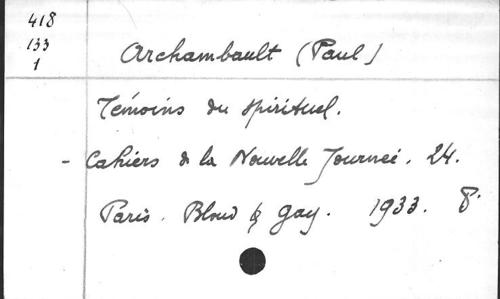 418
133
1
Archambault (Paul)
Témoins du spirituel.
- Cahiers d la Nouvelle Journeé. 24.
Paris. Bloud & Gay. 1933. 8°